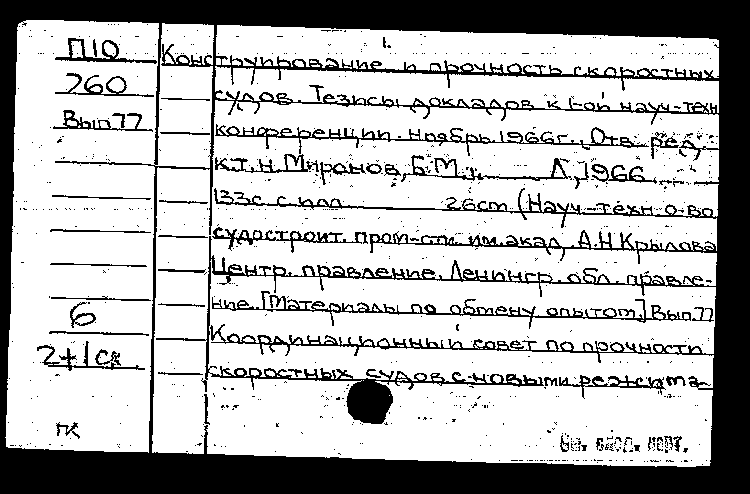 1.
П10 Конструирование и прочность скоростных
760 судов. Тезисы докладов к I-ой науч-техн
Вып 77 конференции. Ноябрь 1966г. Отв ред,
к.т.н. Миронов, Б.М. Л, 1966
133с с илл 26cm (Науч-техн о-во
судостроит. пром-сти им. акад. А.Н Крылова
Центр. правление. Ленингр. обл. правле-
ние. [Материалы по обмену опытом.] Вып.77
6 Координационный совет по прочности
2+1 ск скоростных судов с новыми режима-
ПК
См. след. карт.